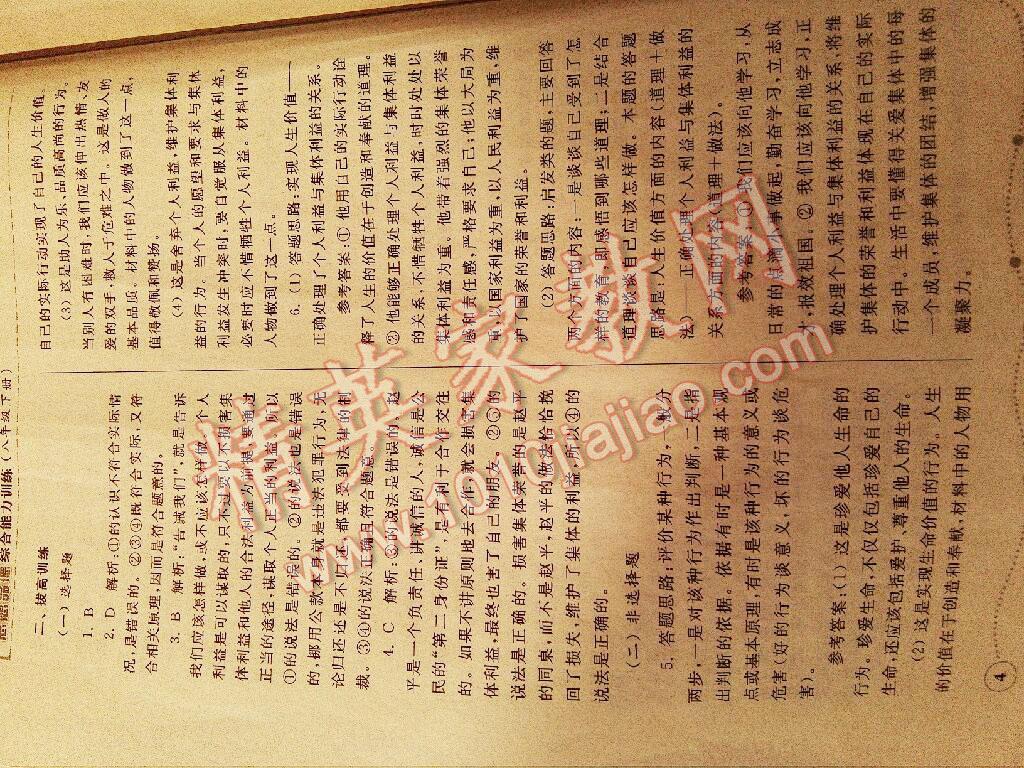 综合能力训练(八年级下册)
二、拔高训练
(一)选择题
1. B
2. D 解析:①的认识不符合实际情
况,是错误的。②③④既符合实际,又符
合相关原理,因而是符合题意的。
3. B 解析:“告诫我们”,就是告诉
我们应该怎样做或不应该怎样做。个人
利益是可以谋取的,只不过要以不损害集
体利益和他人的合法利益为前提,要通过
正当的途径,谋取个人正当的利益,所以
①的说法是错误的。②的说法也是错误
的,挪用公款本身就是违法犯罪行为,无
论归还还是不归还,都要受到法律的制
裁。③④的说法正确且符合题意。
4. C 解析:①的说法是错误的,赵
平是一个负责任、讲诚信的人,诚信是公
民的“第二身份证”,是有利于合作交往
的。如果不讲原则地去合作,就会损害集
体利益,最终也害了自己的朋友。②③的
说法是正确的。损害集体荣誉的是赵平
的同桌,而不是赵平,赵平的做法恰恰挽
回了损失,维护了集体的利益,所以④的
说法是正确的。
(二)非选择题
5. 答题思路:评价某种行为,一般分
两步,一是对该种行为作出判断,二是指
出判断的依据。依据有时是一种基本观
点或基本原理,有时是该种行为的意义或
危害(好的行为谈意义,坏的行为谈危
害)。
参考答案:(1)这是珍爱他人生命的
行为。珍爱生命,不仅仅包括珍爱自己的
生命,还应该包括爱护、尊重他人的生命。
(2)这是实现生命价值的行为。人生
的价值在于创造和奉献,材料中的人物用
自己的实际行动实现了自己的人生价值。
(3)这是助人为乐、品质高尚的行为。
当别人有困难时,我们应该伸出热情友
爱的双手,救人于危难之中。这是做人的
基本品质。材料中的人物做到了这一点,
值得敬佩和赞扬。
(4)这是舍弃个人利益,维护集体利
益的行为。当个人的愿望和要求与集体
利益发生冲突时,要自觉服从集体利益,
必要时应不惜牺牲个人利益。材料中的
人物做到了这一点。
6. (1)答题思路:实现人生价值——
正确处理了个人利益与集体利益的关系。
参考答案:①他用自己的实际行动诠
释了人生的价值在于创造和奉献的道理。
②他能够正确处理个人利益与集体利益
的关系,不惜牺牲个人利益,时时处处以
集体利益为重。他带着强烈的集体荣誉
感和责任感,严格要求自己;他以大局为
重,以国家利益为重,以人民利益为重,维
护了国家的荣誉和利益。
(2)答题思路:启发类的题,主要回答
两个方面的内容:一是谈谈自己受到了怎
样的教育,即感悟到哪些道理;二是结合
道理谈谈自己应该怎样做。本题的答题
思路是:人生价值方面的内容(道理+做
法) 正确处理个人利益与集体利益的
关系方面的内容(道理+做法)
参考答案:①我们应该向他学习,从
日常的点滴小事做起,勤奋学习,立志成
才,报效祖国。②我们应该向他学习,正
确处理个人利益与集体利益的关系,将维
护集体的荣誉和利益体现在自己的实际
行动中。生活中要懂得关爱集体中的每
一个成员,维护集体的团结,增强集体的
凝聚力。
4
精英家教网
www.1010jiajiao.com